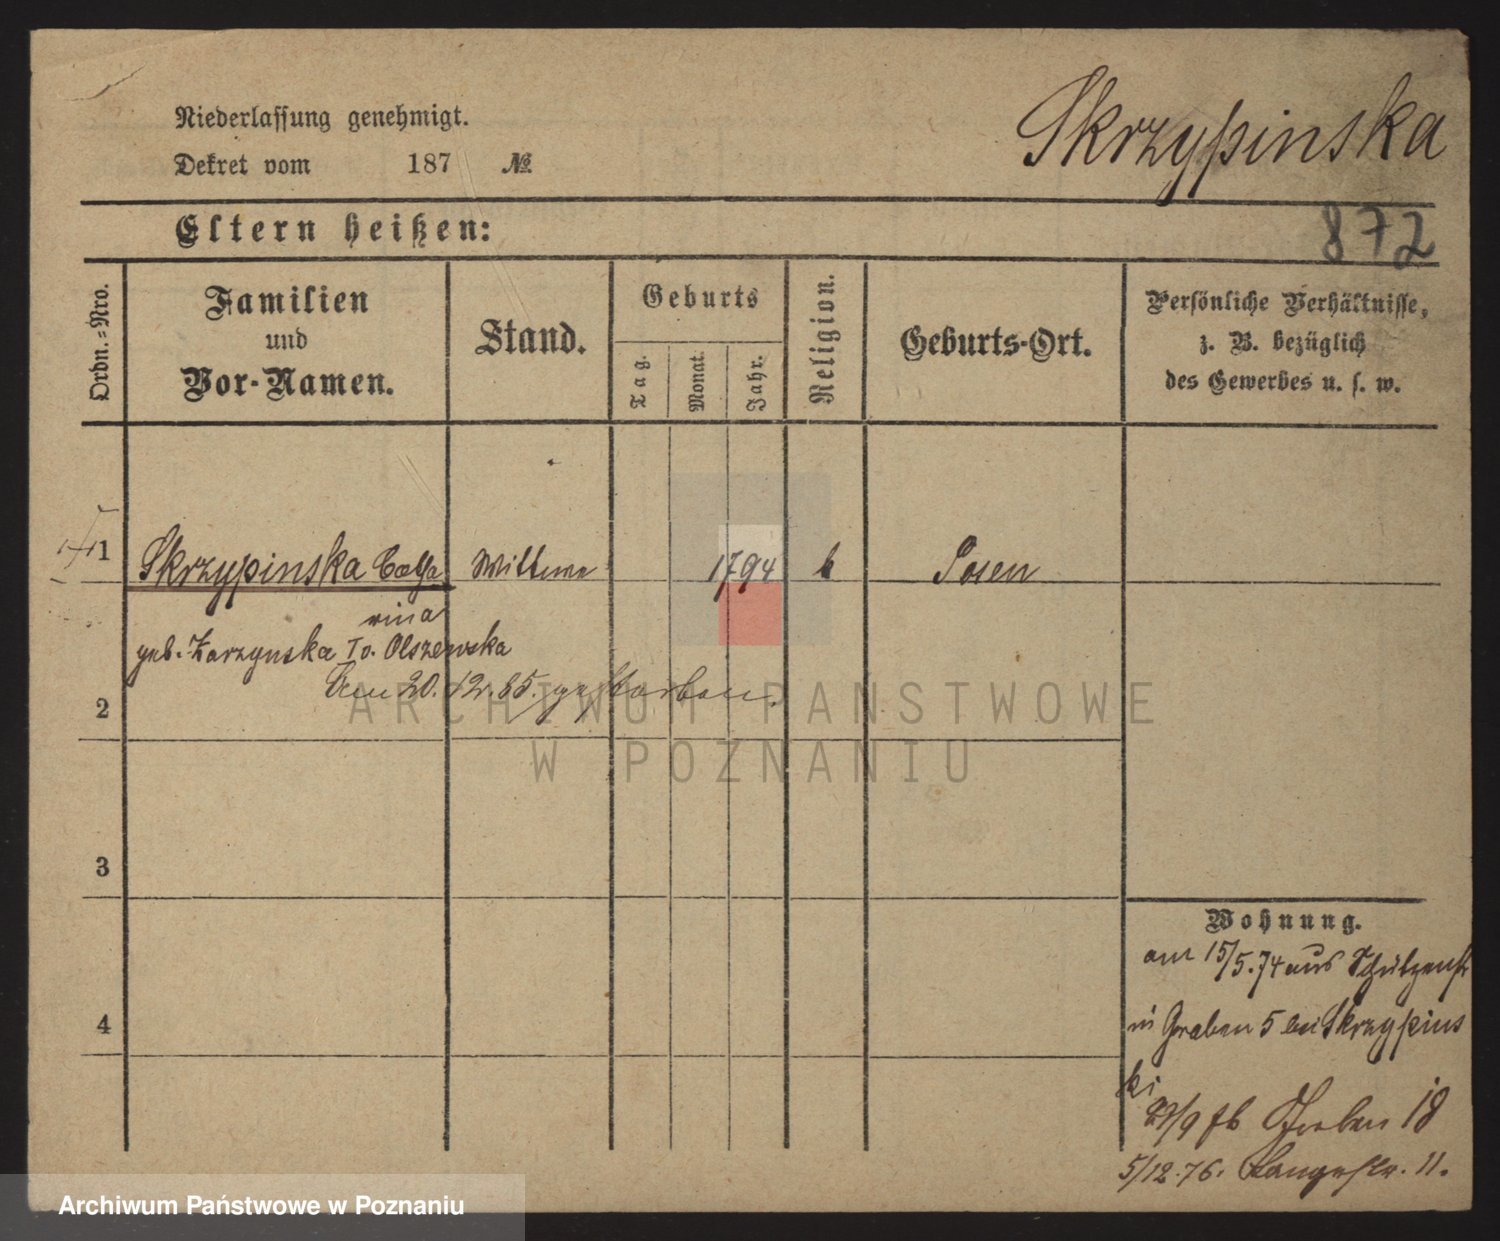 Skrzypinska
Niederlassung genehmigt.
Dekret vom 187 №
Eltern heißen:
872
Ordn.-Nro.
Familien
und
Vor-Namen.
Stand.
Geburts
Tag.
Monat.
Jahr.
Religion.
Geburts-Ort.
Persönliche Verhältnisse,
z. B. bezüglich
des Gewerbes u. s. w.
1 Skrzypinska Catha Wittwe 1794 k Posen
rina
geb. Zarzynska Iv. Olszewska
Am 20.12.85. gestorben.
2
3
4
Wohnung.
am 15/5.74 aus Schützenst
in Graben 5 bei Skrzypins
ki
29/9 Graben 18
5/12.76. Langestr. 11.
ARCHIWUM PAŃSTWOWE
W POZNANIU
Archiwum Państwowe w Poznaniu